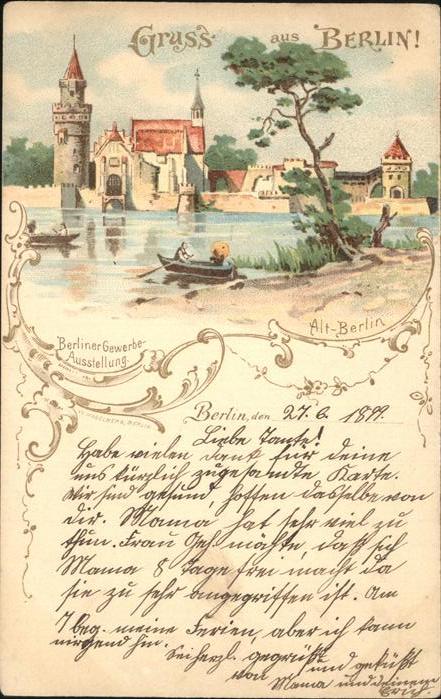 Gruss aus BERLIN!
Alt-Berlin
Berliner Gewerbe-
Ausstellung.
Berlin, den 27. 6. 1899.
Liebe Tante!
Habe vielen Dank für deine
uns kürzlich zugesandte Karte.
Wir sind gesund hoffen dasselbe von
dir. Mama hat sehr viel zu
thun. Frau Geh möchte, daß sich
Mama 8 Tage frei macht da
sie zu sehr angegriffen ist. Am
7 beg. meine Ferien, aber ich kann
nirgend hin. Sei herzl. gegrüßt und geküßt
von Mama und deinem
Erich